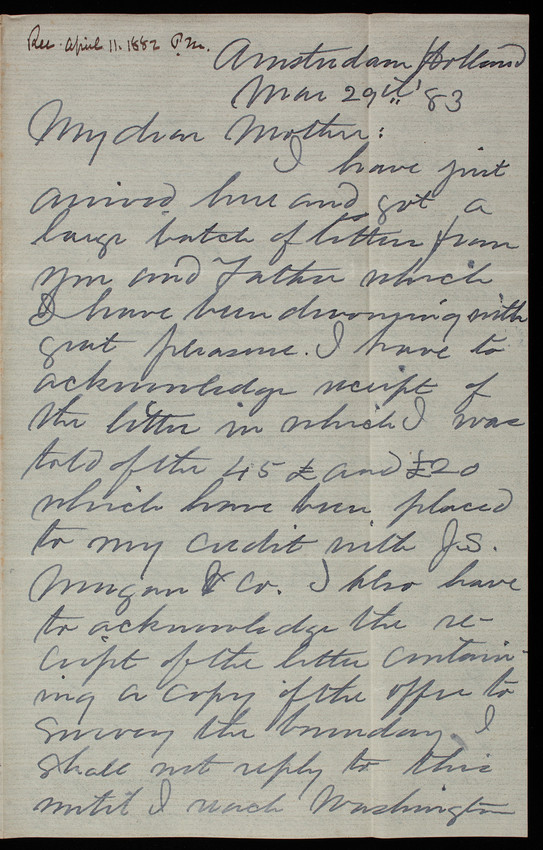 Rec April 11. 1882 P.M.
Amsterdam Holland
Mar 29th '83
My dear Mother:
I have just
arrived here and got a
large batch of letters from
you and Father which
I have been devouring with
great pleasure. I have to
acknowledge receipt of
the letter in which I was
told of the 45 £ and £20
which have been placed
to my credit with J.S.
Morgan & Co. I also have
to acknowledge the re-
ceipt of the letter contain-
ing a copy of the offer to
survey the boundary, I
shall not reply to this
until I reach Washington